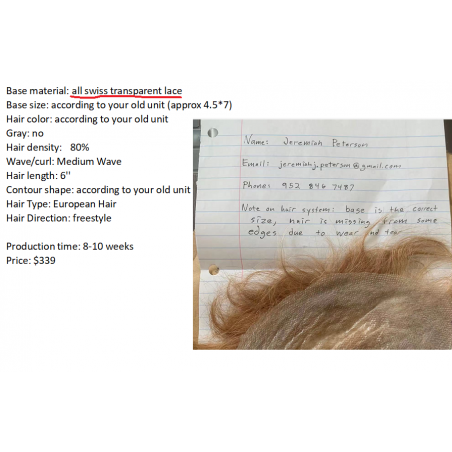 Base material: all swiss transparent lace
Base size: according to your old unit (approx 4.5*7)
Hair color: according to your old unit
Gray: no
Hair density: 80%
Wave/curl: Medium Wave
Hair length: 6''
Contour shape: according to your old unit
Hair Type: European Hair
Hair Direction: freestyle
Production time: 8-10 weeks
Price: $339
Name: Jeremiah Peterson
Email: jeremiahj.peterson@gmail.com
Phone: 952 846 7487
Note on hair system: base is the correct
size, hair is missing from some
edges due to wear and tear